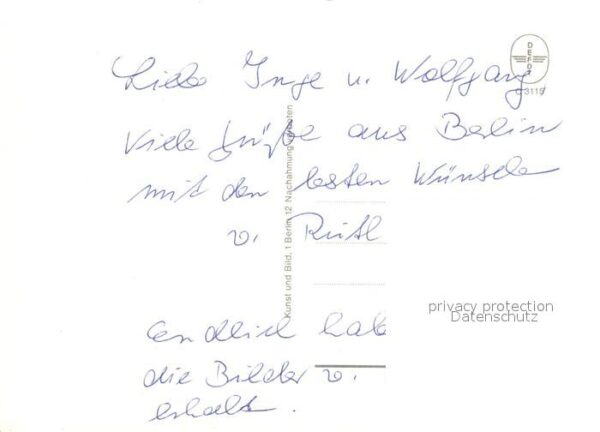 Liebe Inge u. Wolfgang
Viele Grüße aus Berlin
mit den besten Wünschen
v. Ruth
Endlich hab
die Bilder v.
erhalt.
DEFOT
C 3119
Kunst und Bild, 1 Berlin 12 Nachahmung verboten
privacy protection
Datenschutz